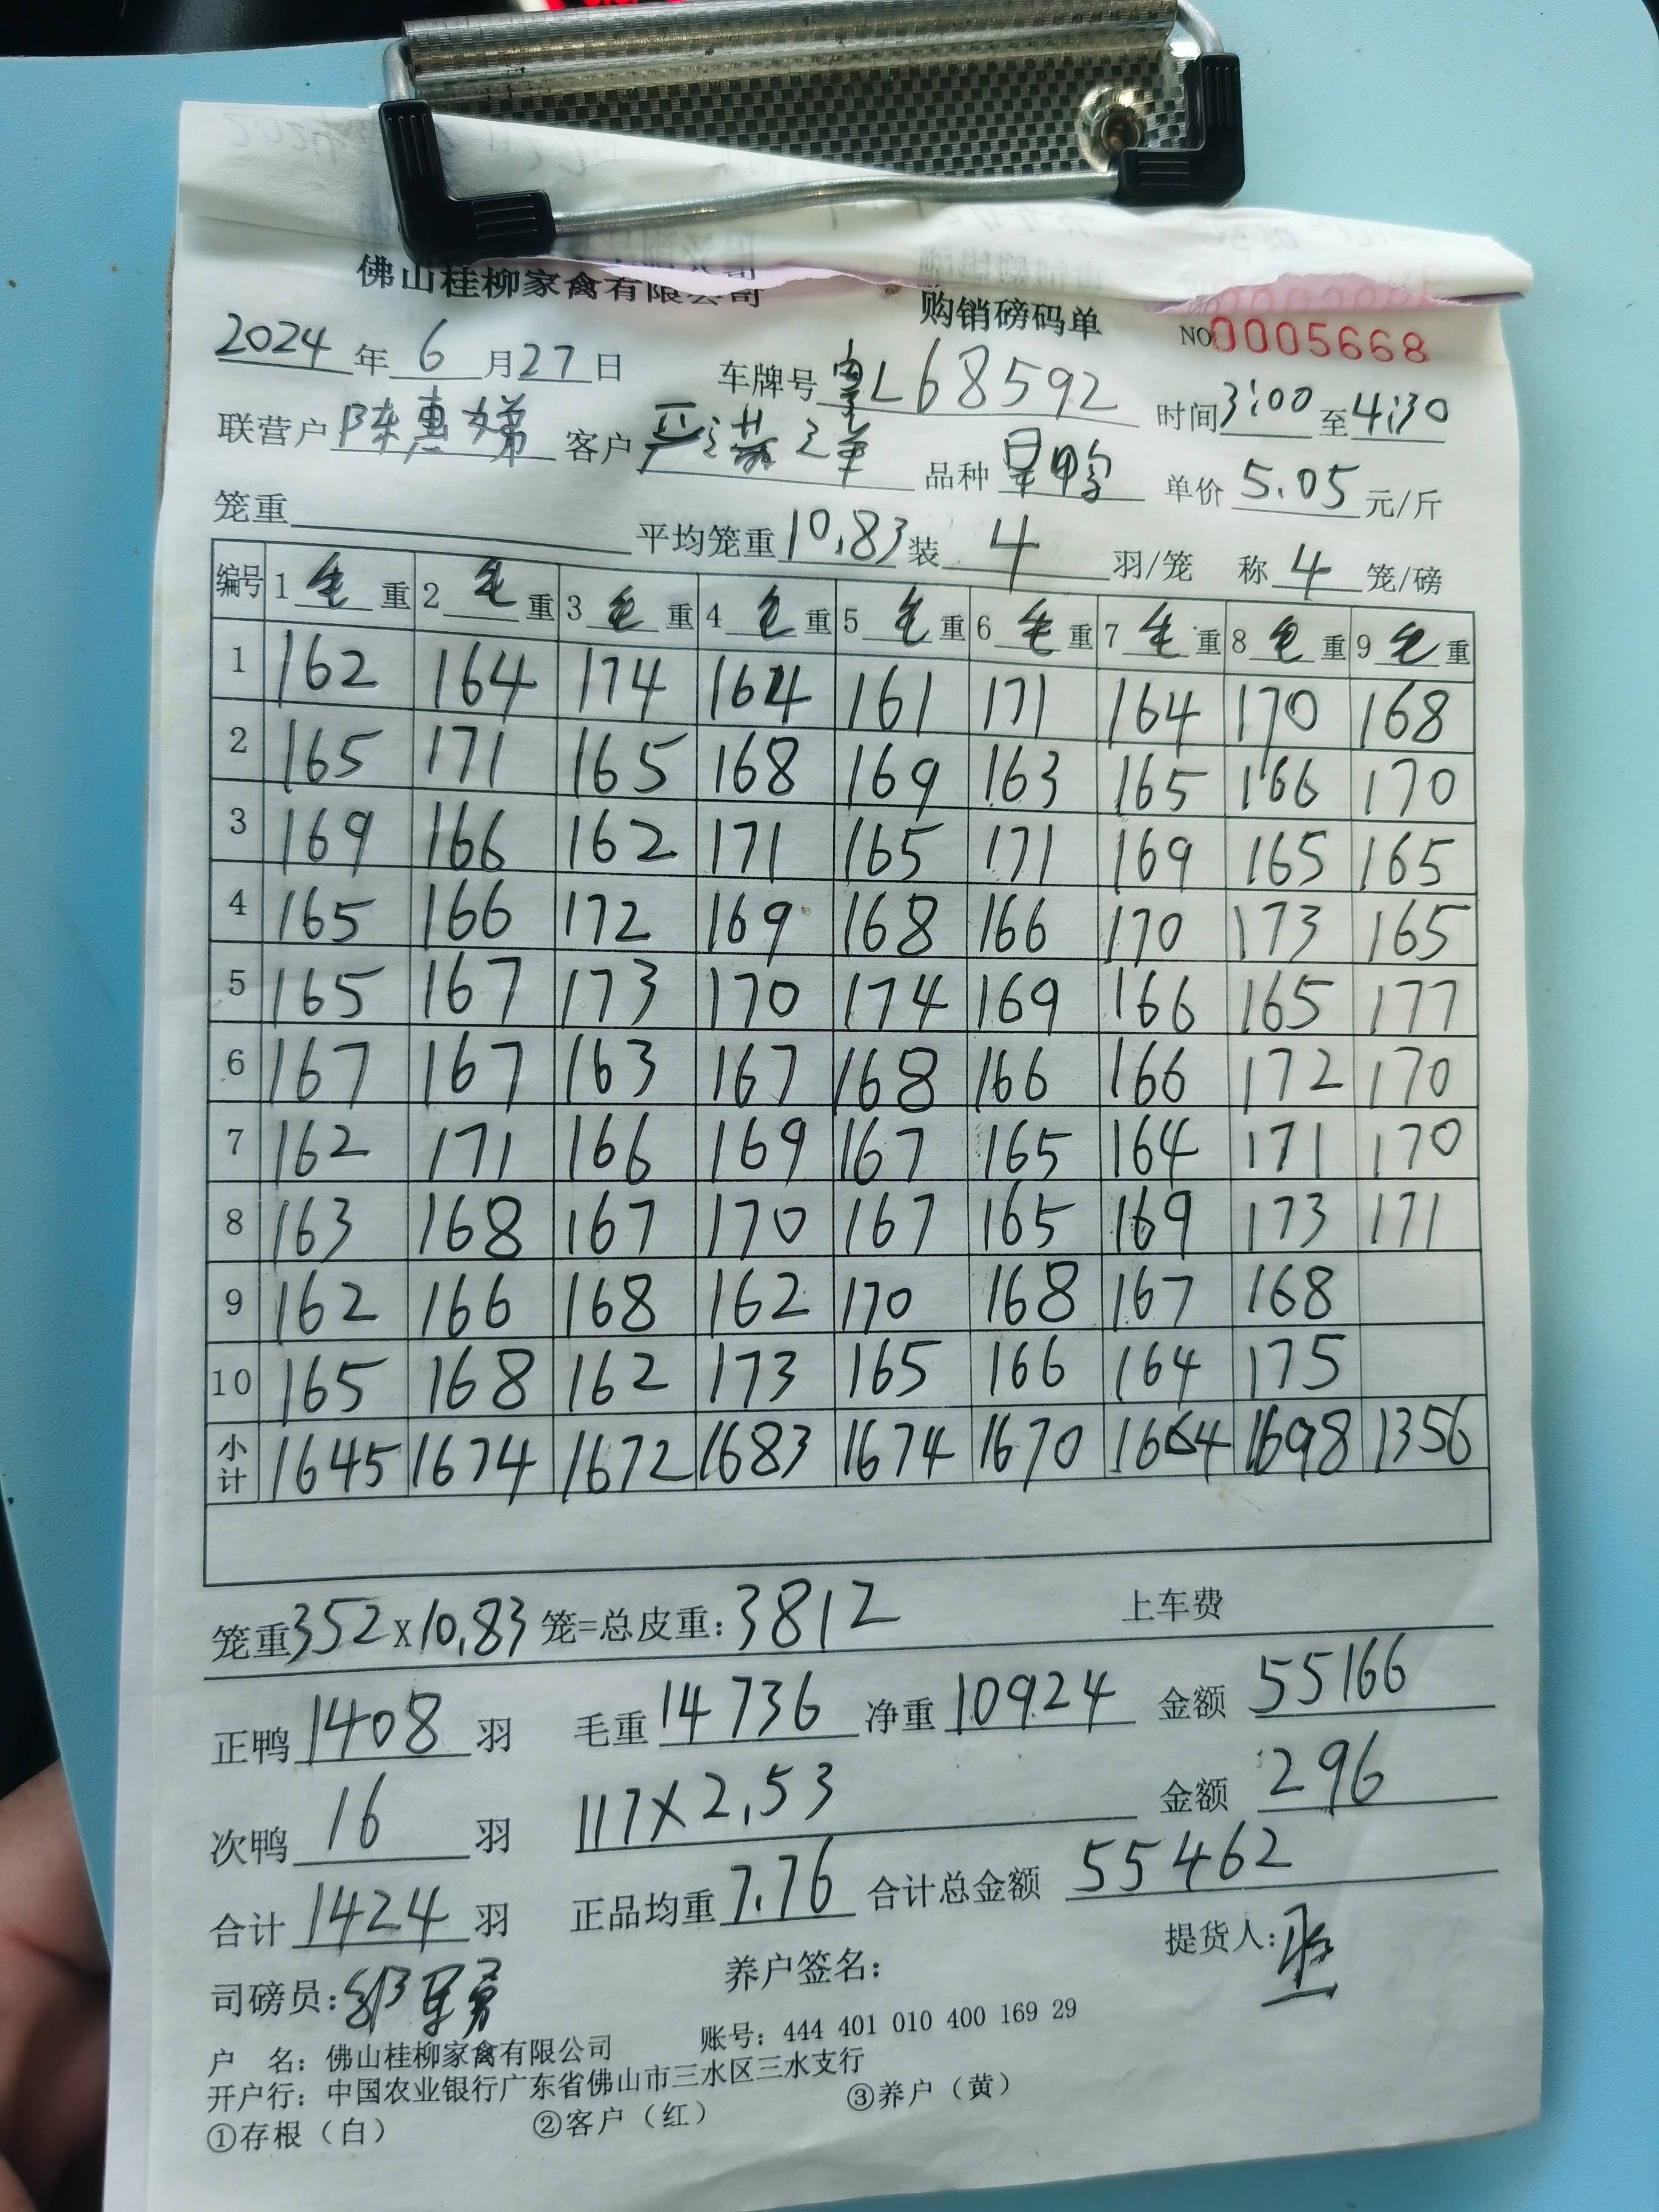 佛山桂柳家禽有限公司 购销磅码单 NO0005668
2024年6月27日 车牌号粤L68592 时间3:00至4:30
联营户陈惠娣 客户 品种 单价5.05元/斤
笼重 平均笼重10.83装4羽/笼 称4笼/磅
编号 1毛重 2毛重 3毛重 4毛重 5毛重 6毛重 7毛重 8毛重 9毛重
1 162 164 174 164 161 171 164 170 168
2 165 171 165 168 169 163 165 166 170
3 169 166 162 171 165 171 169 165 165
4 165 166 172 169 168 166 170 173 165
5 165 167 173 170 174 169 166 165 177
6 167 167 163 167 168 166 166 172 170
7 162 171 166 169 167 165 164 171 170
8 163 168 167 170 167 165 169 173 171
9 162 166 168 162 170 168 167 168
10 165 168 162 173 165 166 164 175
小计 1645 1674 1672 1683 1674 1670 1664 1698 1356
笼重352x10.83笼=总皮重:3812 上车费
正鸭1408羽 毛重14736净重10924 金额55166
次鸭16羽 117x2.53 金额296
合计1424羽 正品均重7.76合计总金额55462
司磅员: 养户签名: 提货人:
户 名:佛山桂柳家禽有限公司 账号:444 401 010 400 169 29
开户行:中国农业银行广东省佛山市三水区三水支行
①存根(白) ②客户(红) ③养户(黄)